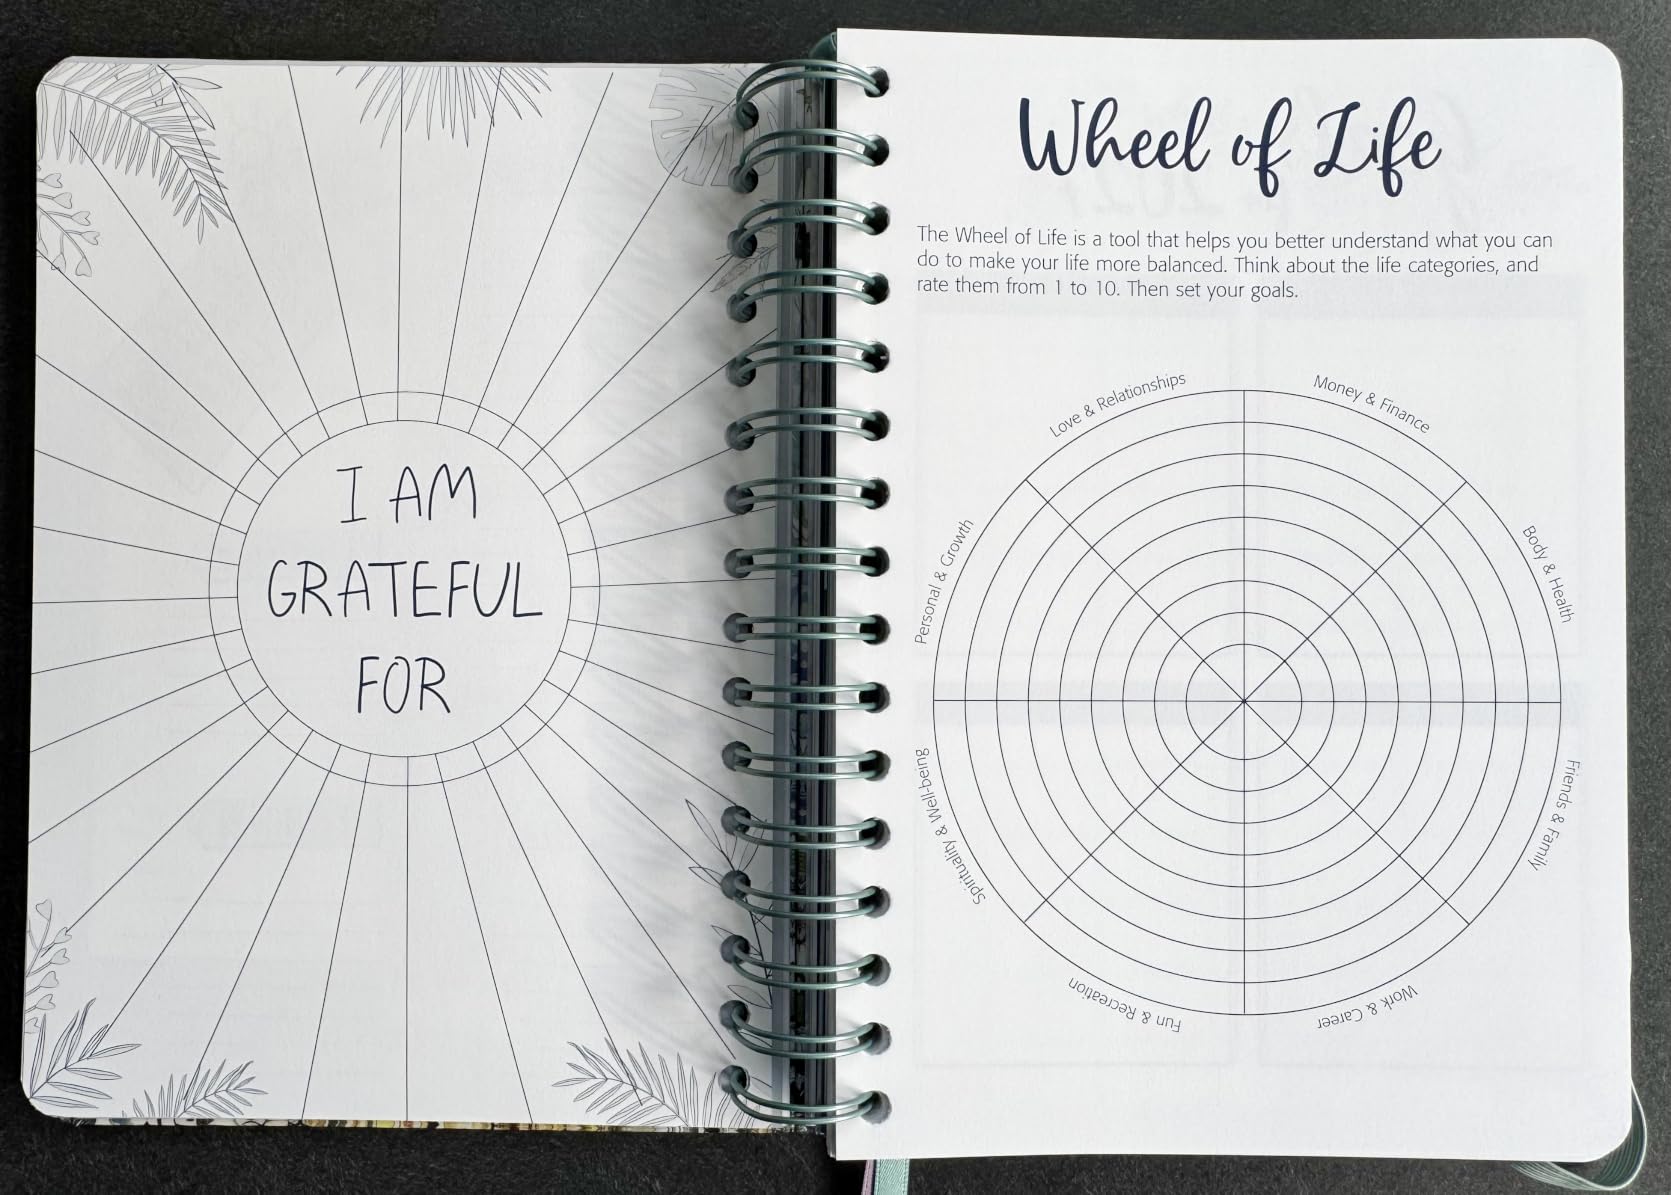 I AM
GRATEFUL
FOR
Wheel of Life
The Wheel of Life is a tool that helps you better understand what you can
do to make your life more balanced. Think about the life categories, and
rate them from 1 to 10. Then set your goals.
Love & Relationships
Money & Finance
Personal & Growth
Body & Health
Spirituality & Well-being
Friends & Family
Fun & Recreation
Work & Career